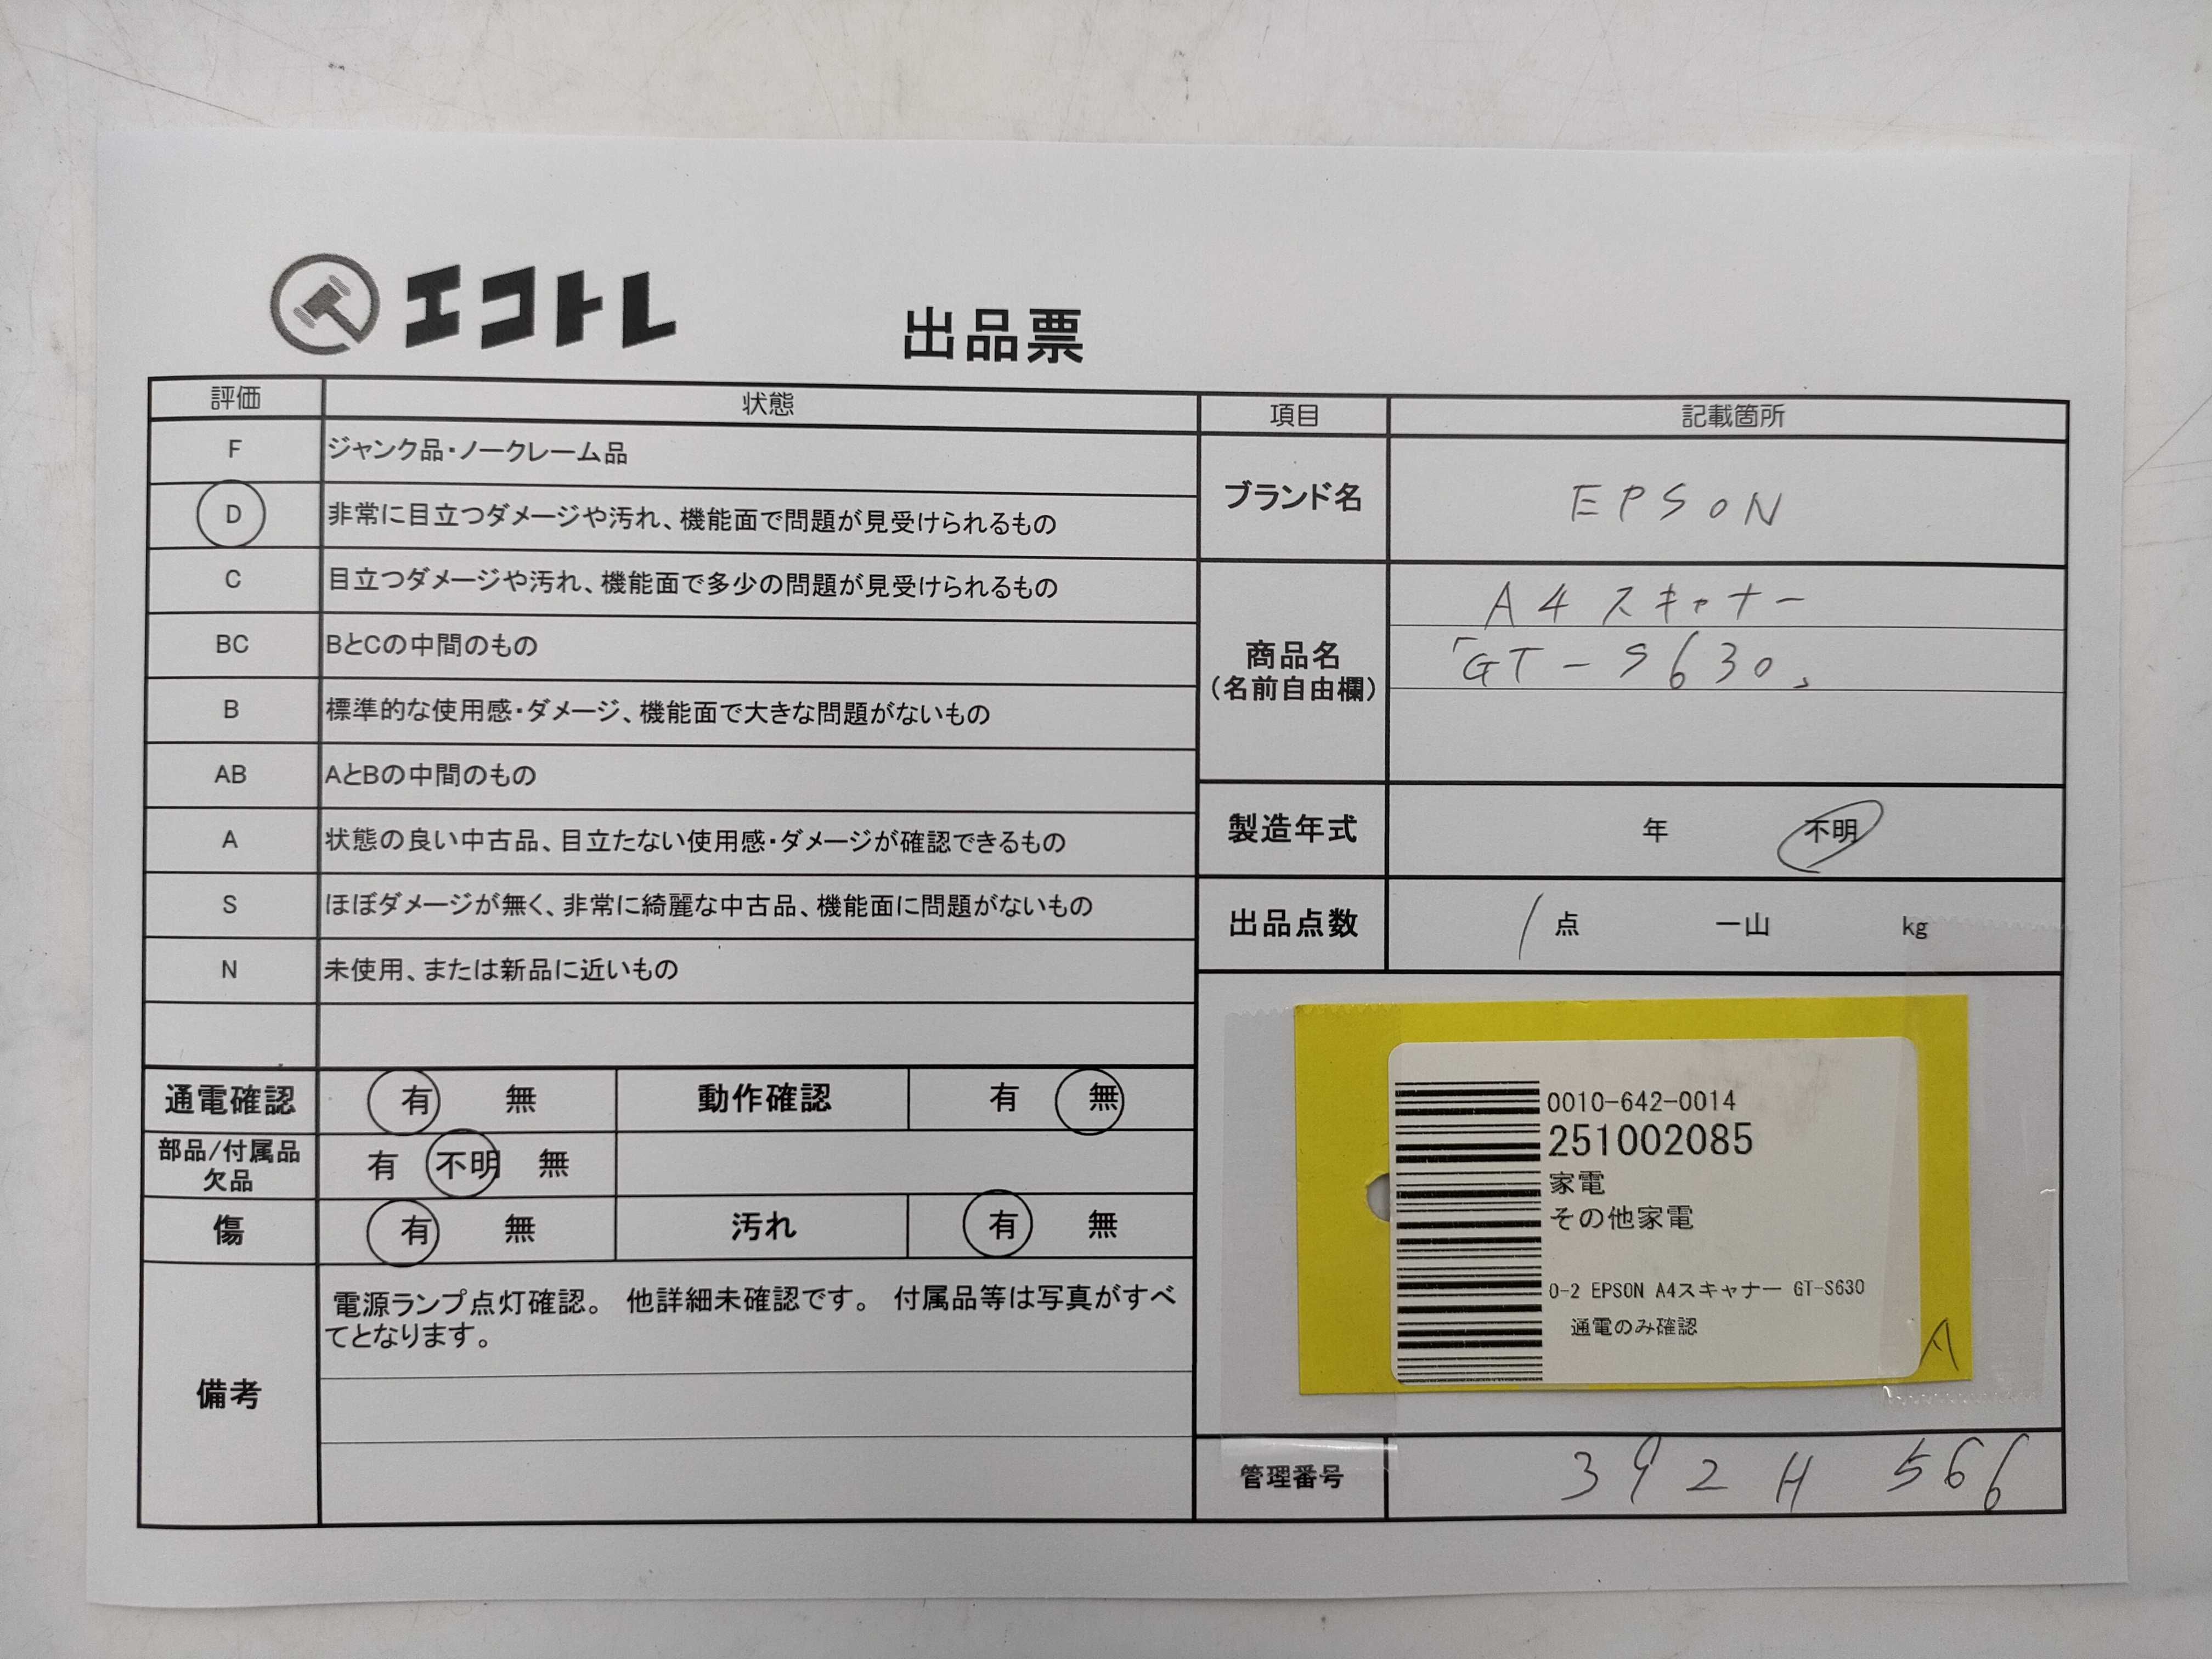 エコトレ
出品票
評価 状態
F ジャンク品・ノークレーム品
D 非常に目立つダメージや汚れ、機能面で問題が見受けられるもの
C 目立つダメージや汚れ、機能面で多少の問題が見受けられるもの
BC BとCの中間のもの
B 標準的な使用感・ダメージ、機能面で大きな問題がないもの
AB AとBの中間のもの
A 状態の良い中古品、目立たない使用感・ダメージが確認できるもの
S ほぼダメージが無く、非常に綺麗な中古品、機能面に問題がないもの
N 未使用、または新品に近いもの
通電確認 有 無 動作確認 有 無
部品/付属品
欠品
有 不明 無
傷 有 無 汚れ 有 無
備考
電源ランプ点灯確認。 他詳細未確認です。 付属品等は写真がすべ
てとなります。
項目 記載箇所
ブランド名 EPSON
商品名
(名前自由欄)
A4スキャナー
「GT-S630」
製造年式 年 不明
出品点数 1 点 一山 kg
0010-642-0014
251002085
家電
その他家電
0-2 EPSON A4スキャナー GT-S630
通電のみ確認
A
管理番号 392H 566